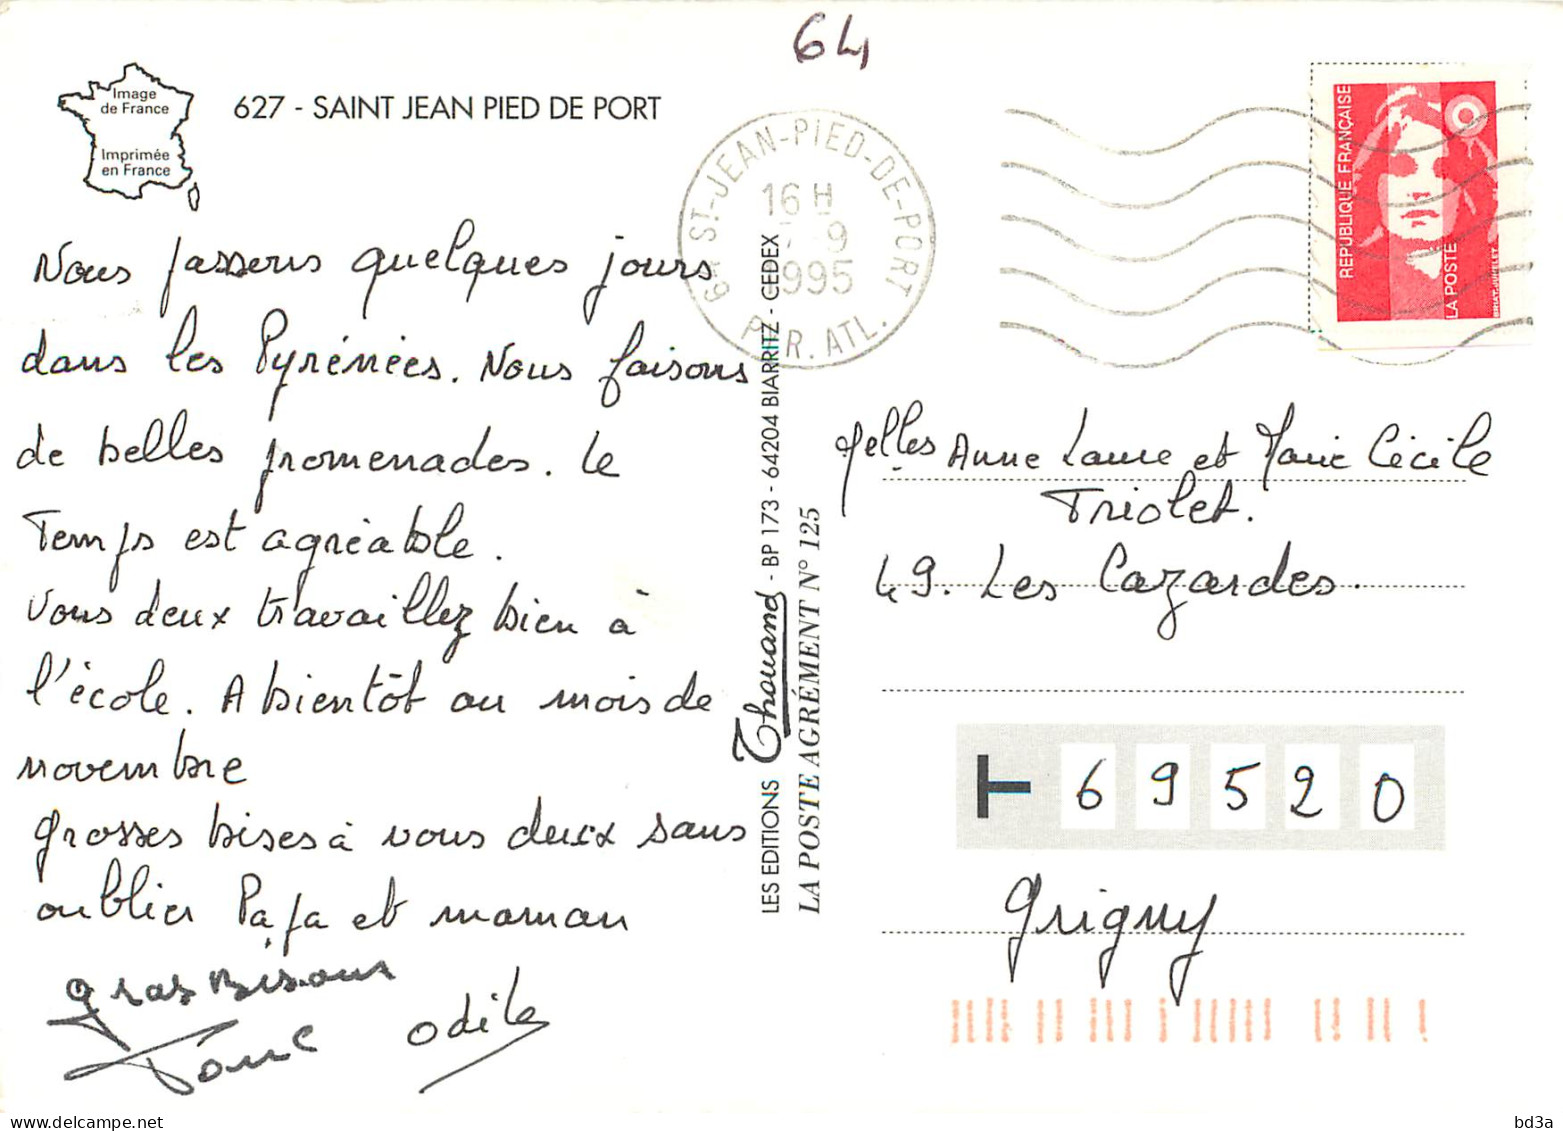 64
Image
de France
Imprimée
en France
627 - SAINT JEAN PIED DE PORT
64 ST-JEAN-PIED-DE-PORT
16 H
9
1995
PYR. ATL.
REPUBLIQUE FRANÇAISE
LA POSTE
BRIAT.JUMELET
Nous passons quelques jours
dans les Pyrénées. Nous faisons
de belles promenades. Le
Temps est agréable.
Vous deux travaillez bien à
l'école. A bientôt au mois de
novembre
grosses bises à vous deux sans
oublier Papa et maman
gros Bisous
Odile
LES EDITIONS Thouand - BP 173 - 64204 BIARRITZ - CEDEX
LA POSTE AGRÉMENT N° 125
Melles Anne Laure et Marie Cécile
Triolet.
49. Les Cazardes.
69520
Grigny
bd3a